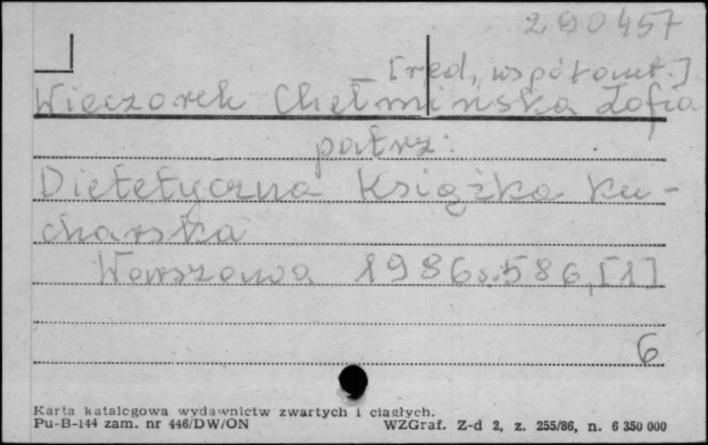 290457
[red., współaut.]
Wieczorek Chełmińska Zofia
patrz:
Dietetyczna Książka ku-
charska
Warszawa 1986 s. 586, [1]
6
Karta katalogowa wydawnictw zwartych i ciągłych.
Pu-B-144 zam. nr 446/DW/ON WZGraf. Z-d 2, z. 255/86, n. 6 350 000